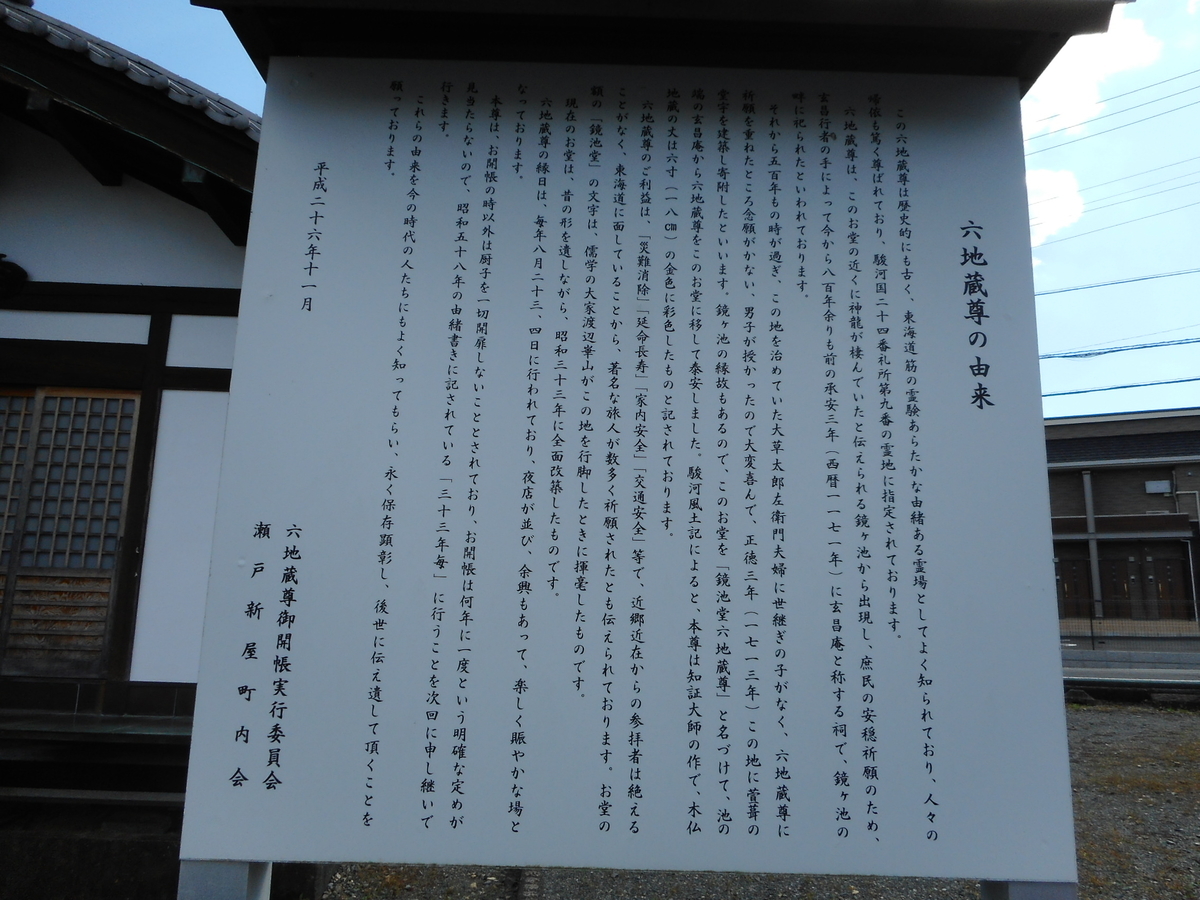 六地蔵尊の由来
この六地蔵尊は歴史的にも古く、東海道筋の霊験あらたかな由緒ある霊場としてよく知られており、人々の
帰依も篤く尊ばれており、駿河国二十四番札所第九番の霊地に指定されております。
六地蔵尊は、このお堂の近くに神龍が棲んでいたと伝えられる鏡ヶ池から出現し、庶民の安穏祈願のため、
玄昌行者の手によって今から八百年余りも前の承安三年（西暦一一七一年）に玄昌庵と称する祠で、鏡ヶ池の
畔に祀られたといわれております。
それから五百年もの時が過ぎ、この地を治めていた大草太郎左衛門夫婦に世継ぎの子がなく、六地蔵尊に
祈願を重ねたところ念願がかない、男子が授かったので大変喜んで、正徳三年（一七一三年）この地に萱葺の
堂宇を建築し寄附したといいます。鏡ヶ池の縁故もあるので、このお堂を「鏡池堂六地蔵尊」と名づけて、池の
端の玄昌庵から六地蔵尊をこのお堂に移して泰安しました。駿河風土記によると、本尊は知証大師の作で、木仏
地蔵の大は六寸（一八㎝）の金色に彩色したものと記されております。
六地蔵尊のご利益は、「災難消除」「延命長寿」「家内安全」「交通安全」等で、近郷近在からの参拝者は絶える
ことがなく、東海道に面していることから、著名な旅人が数多く祈願されたとも伝えられております。お堂の
額の「鏡池堂」の文字は、儒学の大家渡辺崋山がこの地を行脚したときに揮毫したものです。
現在のお堂は、昔の形を遺しながら、昭和三十三年に全面改築したものです。
六地蔵尊の縁日は、毎年八月二十三、四日に行われており、夜店が並び、余興もあって、楽しく賑やかな場と
なっております。
本尊は、お開帳の時以外は厨子を一切開扉しないこととされており、お開帳は何年に一度という明確な定めが
見当たらないので、昭和五十八年の由緒書きに記されている「三十三年毎」に行うことを次回に申し継いで
行きます。
これらの由来を今の時代の人たちにもよく知ってもらい、永く保存顕彰し、後世に伝え遺して頂くことを
願っております。
平成二十六年十一月
六地蔵尊御開帳実行委員会
瀬戸新屋町内会